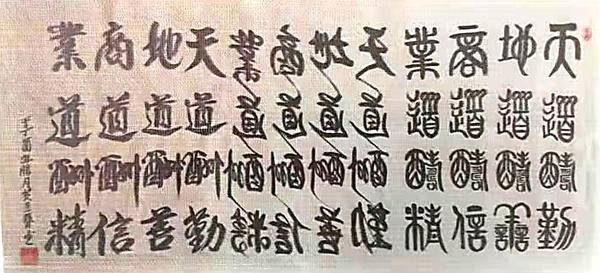 天道酬勤
地道酬善
商道酬信
業道酬精
天道酬勤
地道酬善
商道酬信
業道酬精
天道酬勤
地道酬善
商道酬信
業道酬精
丁酉年臘月